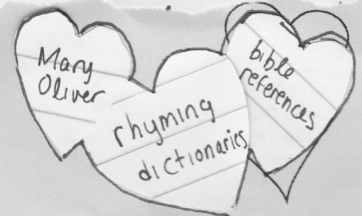 Mary
Oliver
rhyming
dictionaries
bible
references